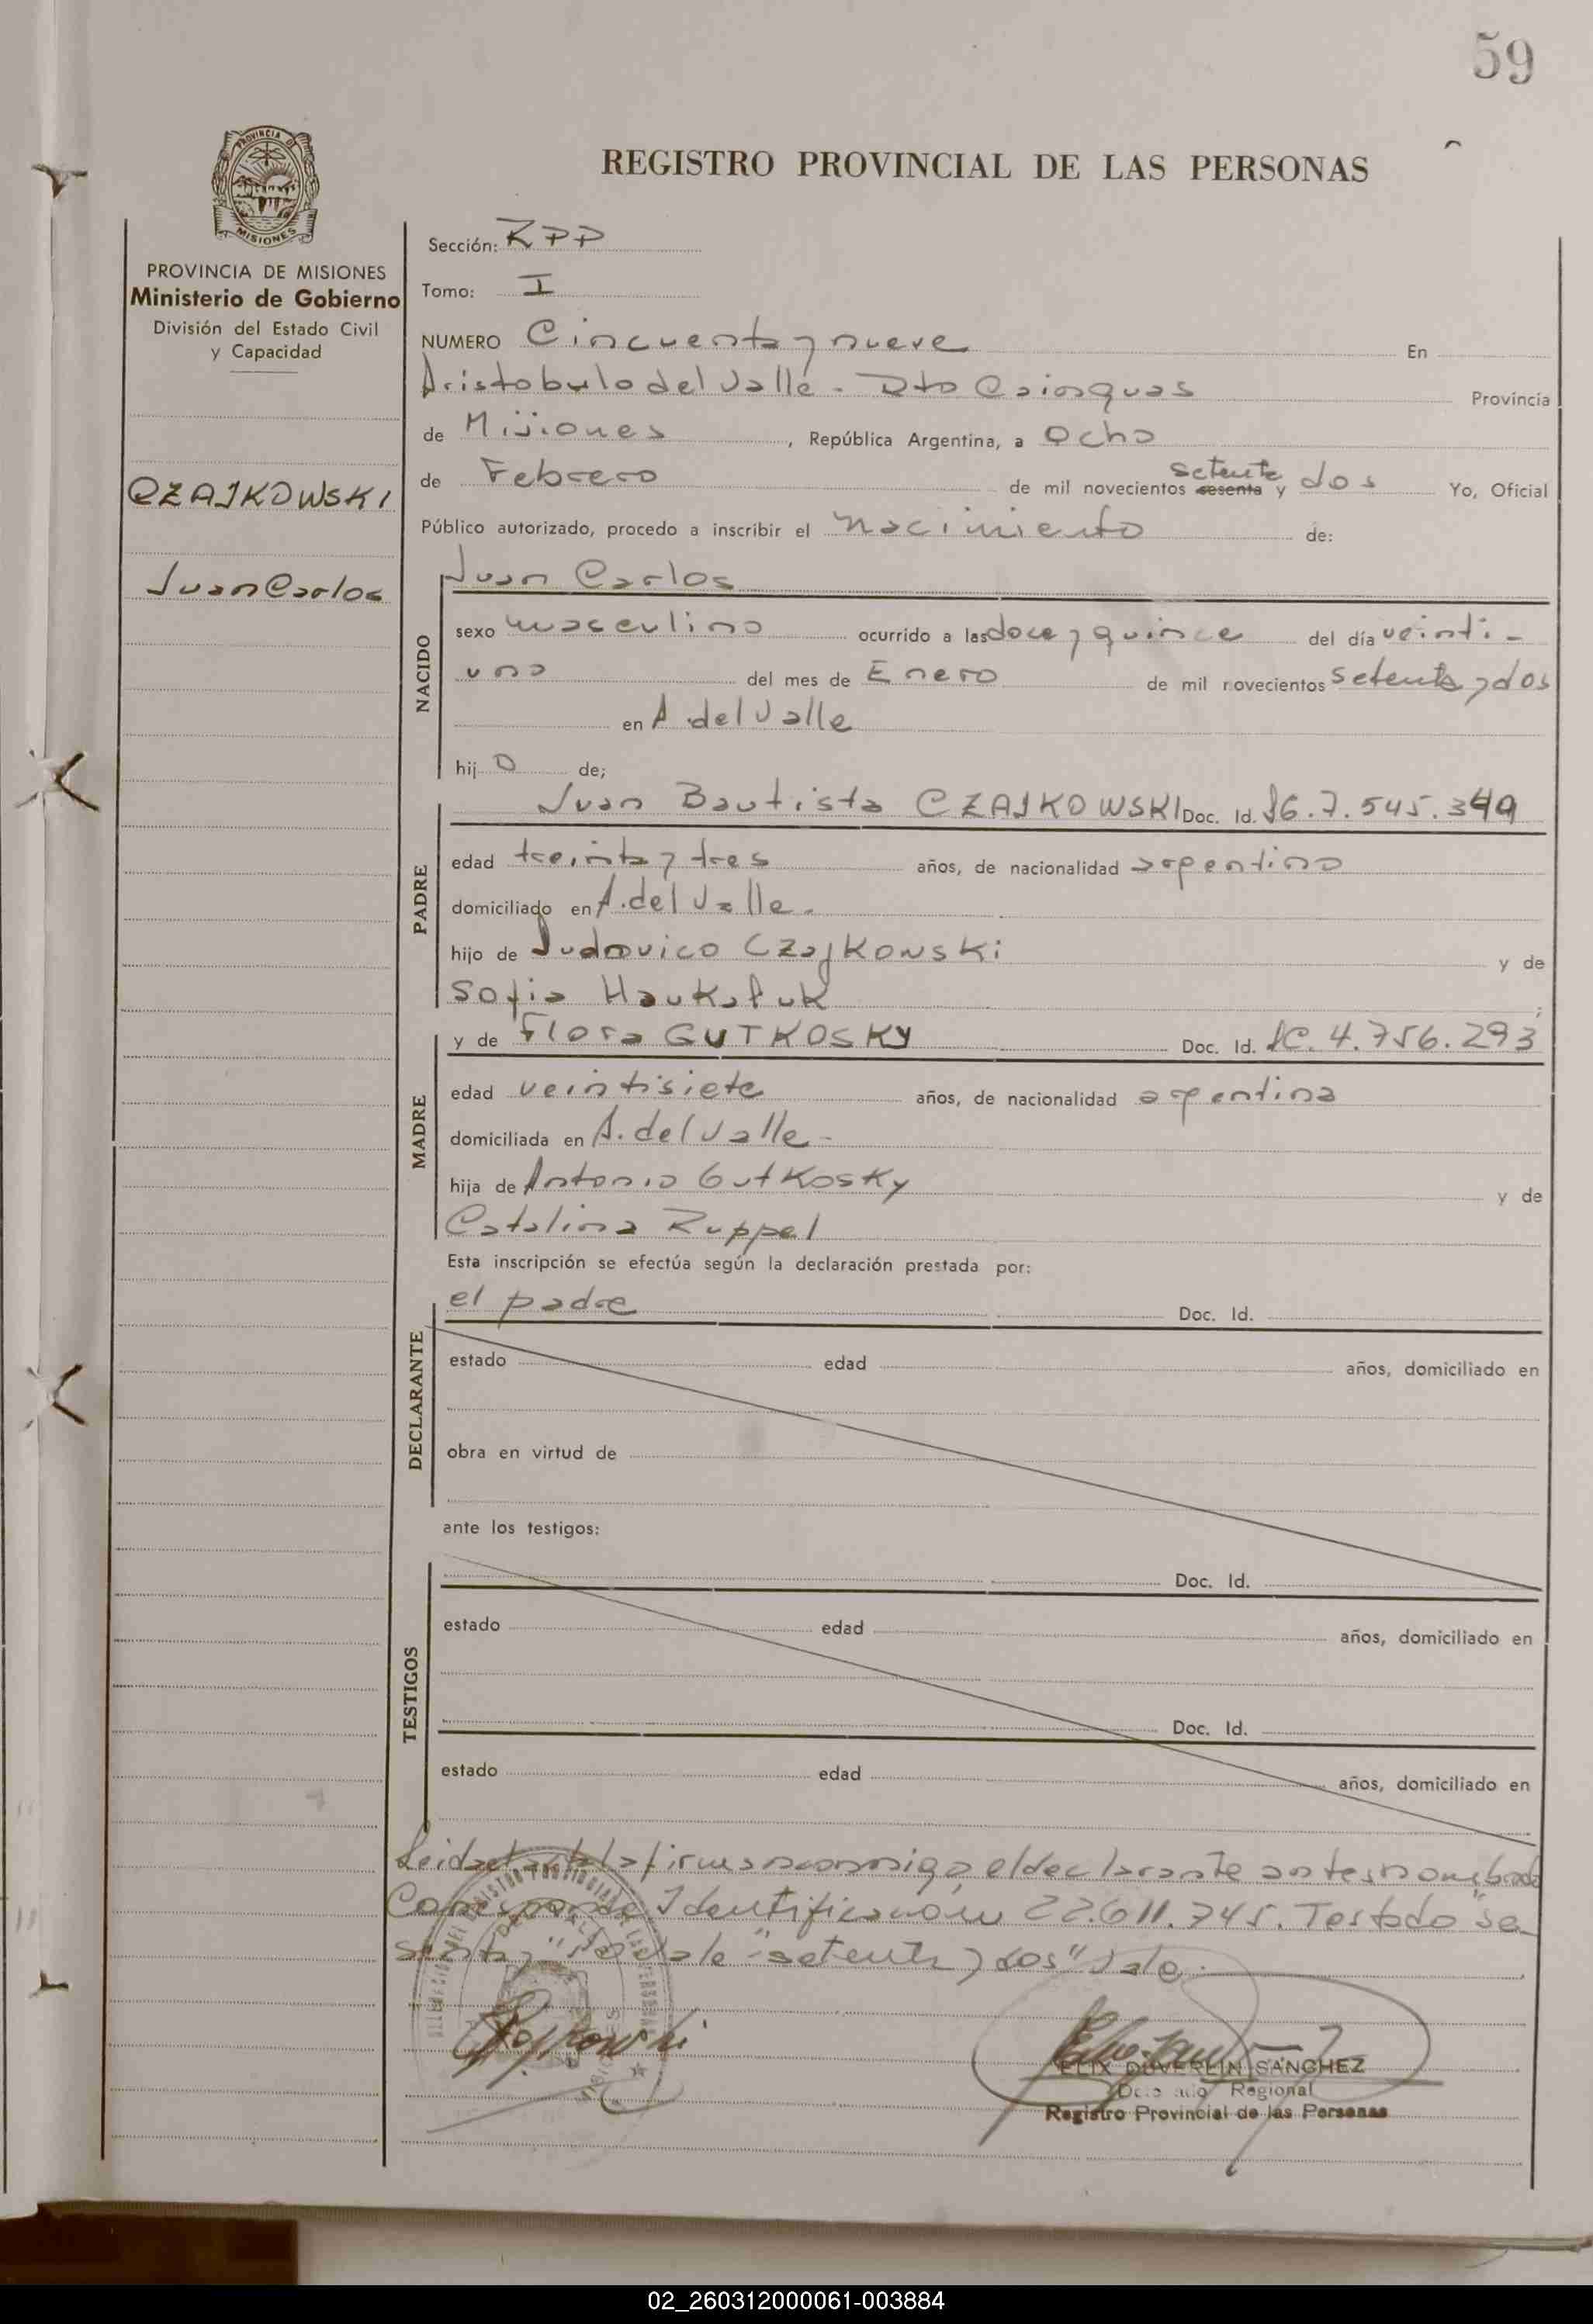 59
REGISTRO PROVINCIAL DE LAS PERSONAS
PROVINCIA DE MISIONES
Ministerio de Gobierno
División del Estado Civil
y Capacidad
CZAJKOWSKI
Juan Carlos
Sección: RPP
Tomo: I
NUMERO Cincuenta y nueve En
Aristobulo del Valle - Dto Cainguas Provincia
de Misiones, República Argentina, a Ocho
de Febrero de mil novecientos setenta sesenta y dos Yo, Oficial
Público autorizado, procedo a inscribir el nacimiento de:
NACIDO
Juan Carlos
sexo masculino ocurrido a las doce y quince del día veinti-
uno del mes de Enero de mil novecientos setenta y dos
en A. del Valle
hijo de;
PADRE
Juan Bautista CZAJKOWSKI Doc. Id. 7.545.349
edad treinta y tres años, de nacionalidad argentino
domiciliado en A. del Valle.
hijo de Ludovico Czajkowski y de
Sofia ;
MADRE
y de Flora GUTKOSKY Doc. Id. LC. 4.756.293
edad veintisiete años, de nacionalidad argentina
domiciliada en A. del Valle-
hija de Antonio Gutkosky y de
Catalina Ruppel
Esta inscripción se efectúa según la declaración prestada por:
DECLARANTE
el padre Doc. Id.
estado edad años, domiciliado en
obra en virtud de
ante los testigos:
TESTIGOS
Doc. Id.
estado edad años, domiciliado en
Doc. Id.
estado edad años, domiciliado en
Leida el acta la firma conmigo, el declarante antes nombrado
Corresponde Identificación 22.611.745. Testado "se
senta y" no vale "setenta y dos" Vale.
FELIX DUVERLIN SANCHEZ
Delegado Regional
Registro Provincial de las Personas
02_260312000061-003884